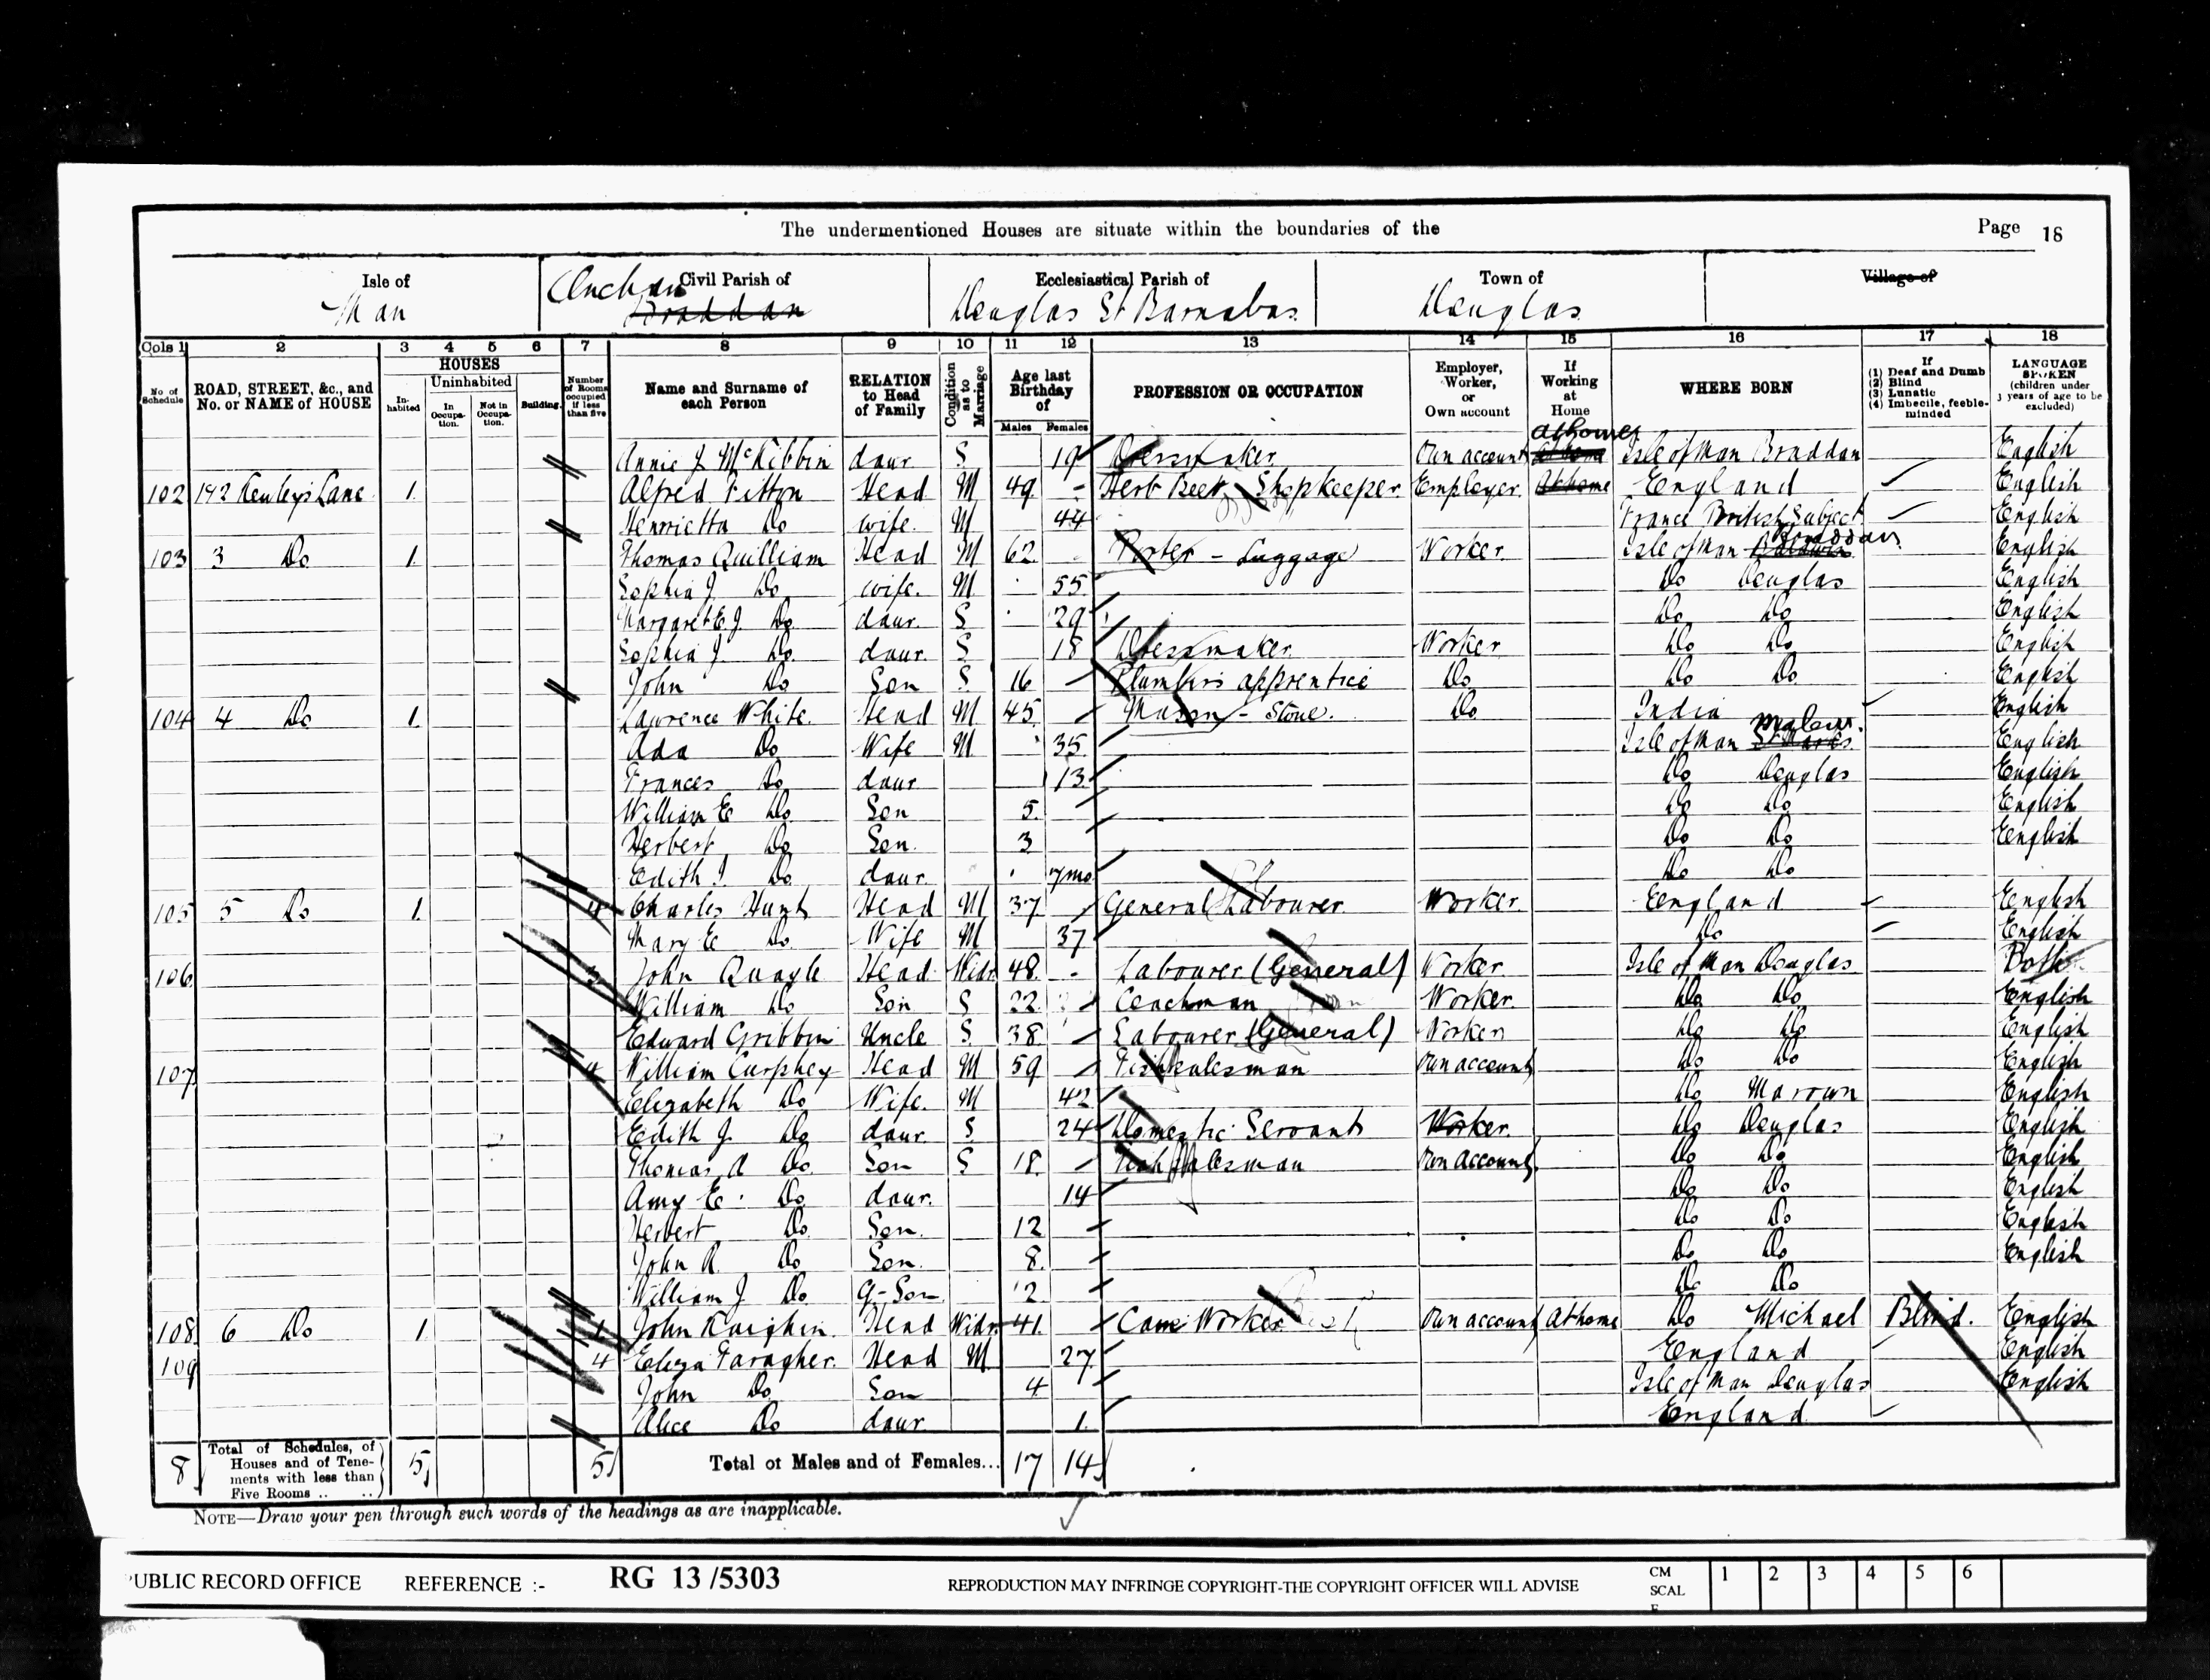 The undermentioned Houses are situate within the boundaries of the
Page 18
Isle of
Man
Civil Parish of
Onchan
Braddan
Ecclesiastical Parish of
Douglas St Barnabas
Town of
Douglas
Village of
Cols 1 2 3 4 5 6 7 8 9 10 11 12 13 14 15 16 17 18
No. of Schedule
ROAD, STREET, &c., and No. or NAME of HOUSE
HOUSES
In-habited
Uninhabited
In Occupa-tion.
Not in Occupa-tion.
Building.
Number of Rooms occupied if less than five
Name and Surname of each Person
RELATION to Head of Family
Condition as to Marriage
Age last Birthday of
Males Females
PROFESSION OR OCCUPATION
Employer, Worker, or Own account
If Working at Home
WHERE BORN
If (1) Deaf and Dumb (2) Blind (3) Lunatic (4) Imbecile, feeble-minded
LANGUAGE SPOKEN (children under 3 years of age to be excluded)
at home
Annie J. McKibbin daur. S 19 Dressmaker Own account At home Isle of Man Braddan English
102 1&2 Henley's Lane 1 Alfred Fitton Head M 49 - Herb Beer Shopkeeper Employer At home England English
Henrietta Do wife. M 44 France British Subject English
103 3 Do 1 Thomas Quilliam Head M 62 Porter - Luggage Worker Isle of Man Baldwin Braddan English
Sophia J. Do wife. M 55 Do Douglas English
Margaret E. J. Do daur. S 29 Do Do English
Sophia J. Do daur. S 18 Dressmaker Worker Do Do English
John Do Son S 16 Plumbers apprentice Do Do Do English
104 4 Do 1 Lawrence White Head M 45 Mason - Stone. Do India English
Ada Do Wife M 35 Isle of Man St Marks Malew English
Frances Do daur 13 Do Douglas English
William E Do Son 5 Do Do English
Herbert Do Son 3 Do Do English
Edith J. Do daur. 7mo Do Do
105 5 Do 1 4 Charles Hunt Head M 37 General Labourer Worker England English
Mary E Do Wife M 37 Do English
106 3 John Quayle Head Widr 48 - Labourer (General) Worker Isle of Man Douglas Both
William Do Son S 22 Coachman Worker Do Do English
Edward Gribbin Uncle S 38 Labourer (General) Worker Do Do English
107 4 William Curphey Head M 59 Fish salesman Own account Do Do English
Elizabeth Do Wife. M 42 Do Marown English
Edith J. Do daur. S 24 Domestic Servant Worker Do Douglas English
Thomas A Do Son S 18 Fish Salesman Own account Do Do English
Amy E. Do daur. 14 Do Do English
Herbert Do Son. 12 Do Do English
John R. Do Son. 8 Do Do English
William J Do G-Son 2 Do Do
108 6 Do 1 1 John Kaighin Head Widr 41 Cane Worker Own account At home Do Michael Blind. English
109 4 Eliza Faragher Head M 27 England English
John Do Son 4 Isle of Man Douglas English
Alice Do daur 1 England
8 Total of Schedules, of Houses and of Tene-ments with less than Five Rooms .. .. 5 5 Total of Males and of Females... 17 14
NOTE—Draw your pen through such words of the headings as are inapplicable.
PUBLIC RECORD OFFICE REFERENCE :- RG 13/5303 REPRODUCTION MAY INFRINGE COPYRIGHT-THE COPYRIGHT OFFICER WILL ADVISE CM SCALE 1 2 3 4 5 6